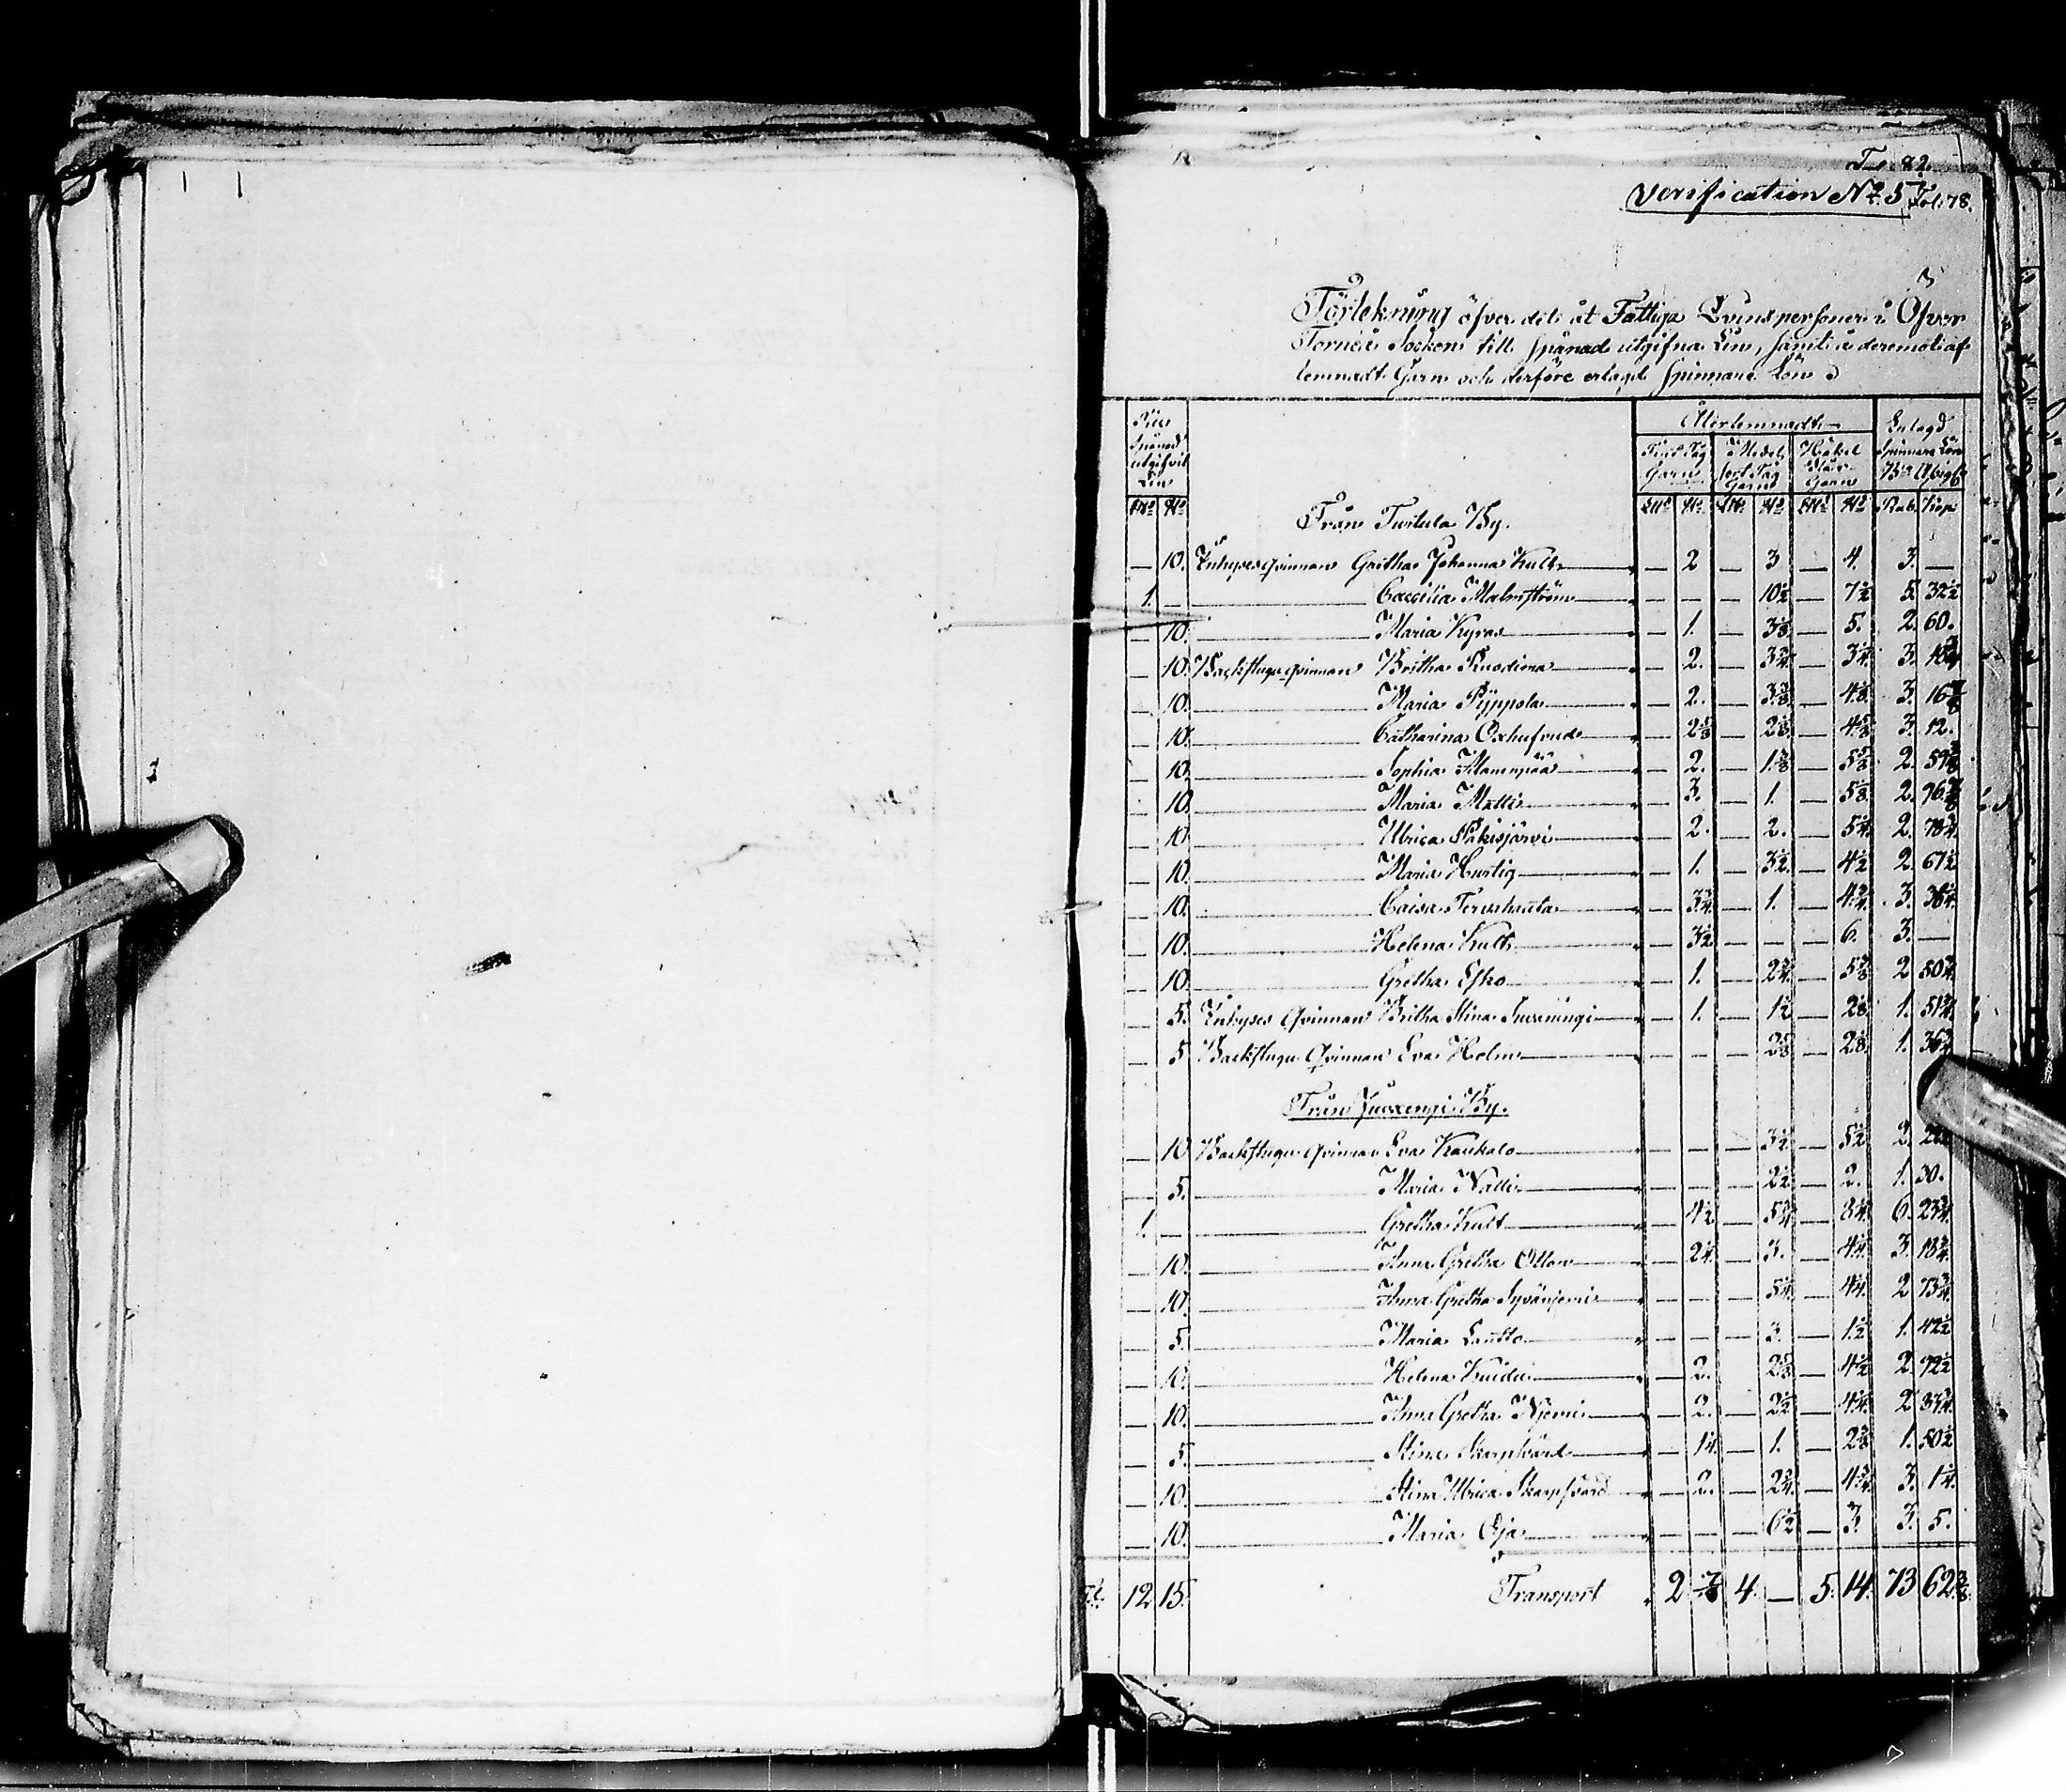 Fol. 82.
Verification No. 5 Fol. 78.
Förtekning öfver det åt Fattiga Qvinspersoner i Öfver
Torneå Socken till spånad utgifna Lin, samt deremot af
lemnadt Garn och derföre erlagd spinnare Lön
Till spånad utgifvit Lin
Återlemnadt
Fint Tåg Garn
Medel sort Tåg Garn
Häkel Blår Garn
Erlagd Spinnare Lön Bco Assig.
L℔ ℔ L℔ ℔ L℔ ℔ L℔ ℔ Rub. Kop.
Från Turtula By.
— 10. Inhyses qvinnan Gretha Johanna Kult — 2 — 3 — 4. 3. —
1. — Caecilia Malmström — — — 10½ — 7½ 5. 32½
— 10. Maria Kyrö — 1. — 3⅛ — 5. 2. 60.
— 10. Backstugu qvinnan Britha Ruodima — 2. — 3¾ — 3¼ 3.
— 10. Maria Pyppola — 2. — 3⅜ — 4⅛ 3. 16⅞
— 10. Catharina Oxhufvud — 2⅝ — 2⅛ — 4⅝ 3. 12.
— 10. Sophia Manenpää — 2. — 1⅜ — 5⅝ 2.
— 10. Maria Matti — 3. — 1. — 5⅛ 2. 96⅞
— 10. Ulrica Pakisjärvi — 2. — 2. — 5¼ 2. 78¾
— 10. Maria Hurtig — 1. — 3½ — 4½ 2. 67½
— 10. Caisa Tervahauta — 3¾ — 1. — 4¾ 3. 36¼
— 10. Helena Kult — 3½ — — — 6. 3. —
— 10. Gretha Esko — 1. — 2¾ — 5⅜ 2. 50¾
— 5. Inhyses Qvinnan Britha Stina Juxengi — 1. — 1½ — 2⅛ 1. 51¾
— 5 Backstugu Qvinnan Eva Holm — — — 2⅝ — 2⅛ 1.
Från Juoxengi By.
— 10 Backstugu Qvinnan Eva Kaukolo — — — 3½ — 5½ 2.
— 5. Maria Natti — — — 2½ — 2. 1. 30.
1. — Gretha Kult — 4½ — 5¾ — 8¼ 6. 23¾
— 10. Anna Gretha Otton — 2¼ — 3. — 4¼ 3. 18¾
— 10. Anna Gretha Syvänjemi — — — 5¼ — 4¼ 2 73¾
— 5. Maria Lautto — — — 3. — 1½ 1. 42½
— 10. Helena Kuidu — 2. — 2⅝ — 4½ 2. 92½
— 10. Anna Gretha Njemi — 2. — 2½ — 4¼ 2
— 5. Stina Skarpsvärd — 1¼ — 1. — 2⅜ 1. 50½
— 10. Stina Ulrica Skarpsvärd — 2. — 2¾ — 4¾ 3. 1¼.
— 10. Maria Oja — — — 6½ — 3. 3. 5.
12 15. Transport 2 ⅞ 4. — 5. 14. 73 62⅜